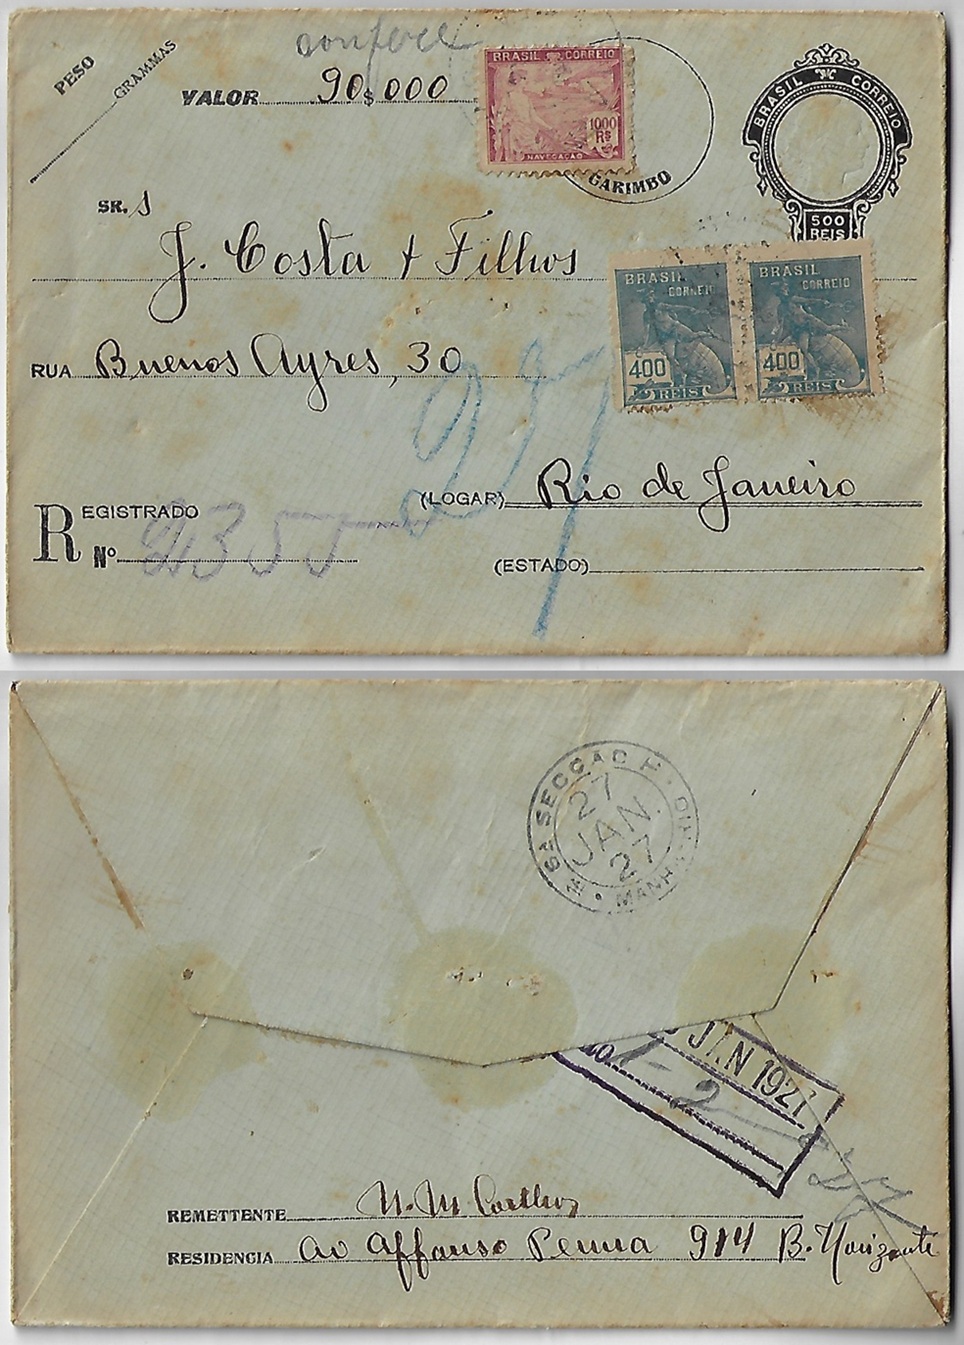 confere
PESO
GRAMMAS
VALOR 90$000
BRASIL CORREIO
1000 Rs
NAVEGAÇÃO
CARIMBO
BRASIL CORREIO
500 REIS
SR.s
J. Costa + Filhos
BRASIL CORREIO
400 REIS
BRASIL CORREIO
400 REIS
RUA Buenos Ayres, 30
27
(LOGAR) Rio de Janeiro
REGISTRADO
Nº 2355
(ESTADO)
6a SECCAO
27
JAN.
27
MANHÃ
JAN 1927
1-2-27
REMETTENTE N. M. Coelho
RESIDENCIA Av Affonso Penna 914 B. Horizonte